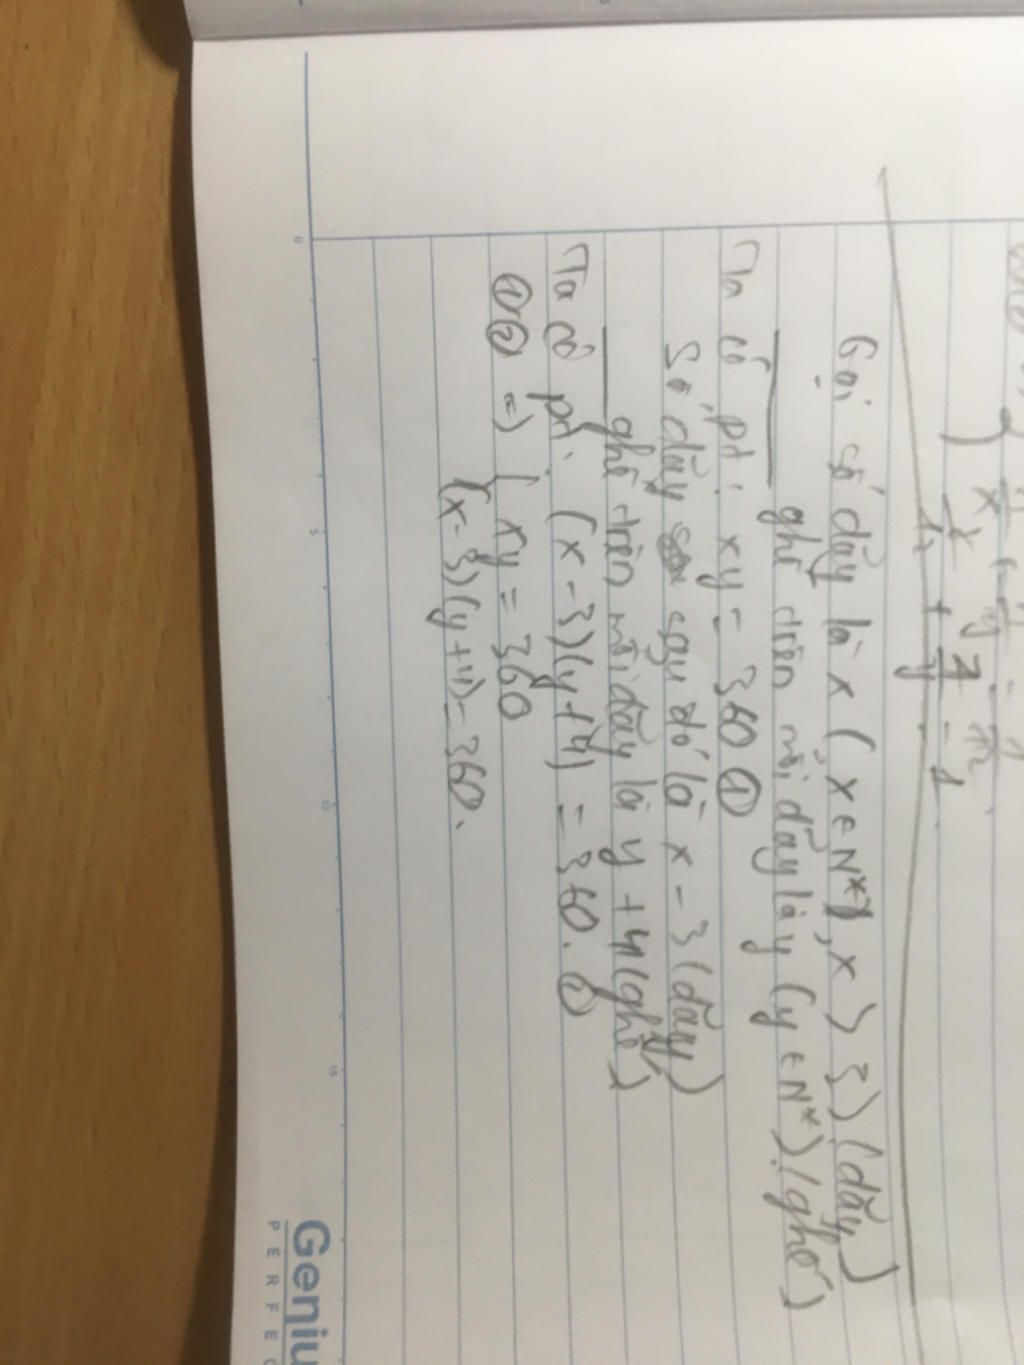 Gọi số dãy là x (x ∈ N*), x > 3) (dãy)
ghế trên mỗi dãy là y (y ∈ N*) (ghế)
Ta có pt: xy = 360 ①
Số dãy sau đó là x - 3 (dãy)
ghế trên mỗi dãy là y + 4 (ghế)
Ta có pt: (x - 3)(y + 4) = 360. ②
①② => { xy = 360
(x - 3)(y + 4) = 360.
Geniu
PERFEC